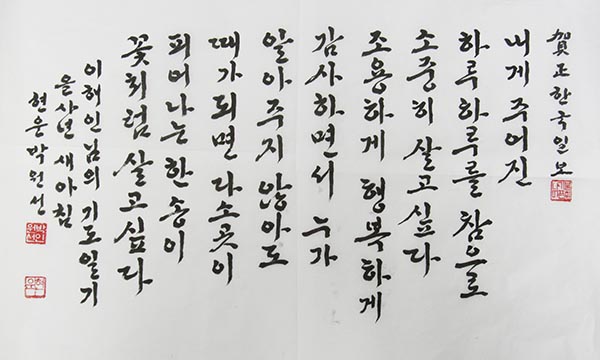 賀正한국일보
내게 주어진
하루하루를 참으로
소중히 살고 싶다
조용하게 행복하게
감사하면서 누가
알아주지 않아도
때가되면 다소곳이
피어나는 한 송이
꽃처럼 살고 싶다
이해인님의 기도일기
을사년 새아침
현운 박원선